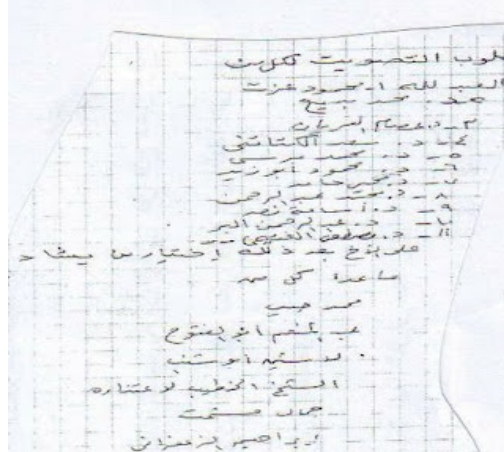 التصويت لكل من
العبد لله أ. محمود عزت
د. محمد بديع
٣ - د. عصام العريان
٤ - د. سعد الكتاتني
٥ - د. محمد مرسي
٦ - د. محمود أبو زيد
٧ - د. محيي حامد
٨ - د. محمد عبد الرحمن
٩ - د. أسامة نصر
١٠ - د. عبد الرحمن البر
١١ - د. مصطفى الغنيمي
بعد ذلك إختيار من يشاء
ما عدا كل من
محمد حبيب
عبد المنعم أبو الفتوح
لاشين أبو شنب
الشيخ الخطيب لاعتذاره
جمال حشمت
إبراهيم الزعفراني